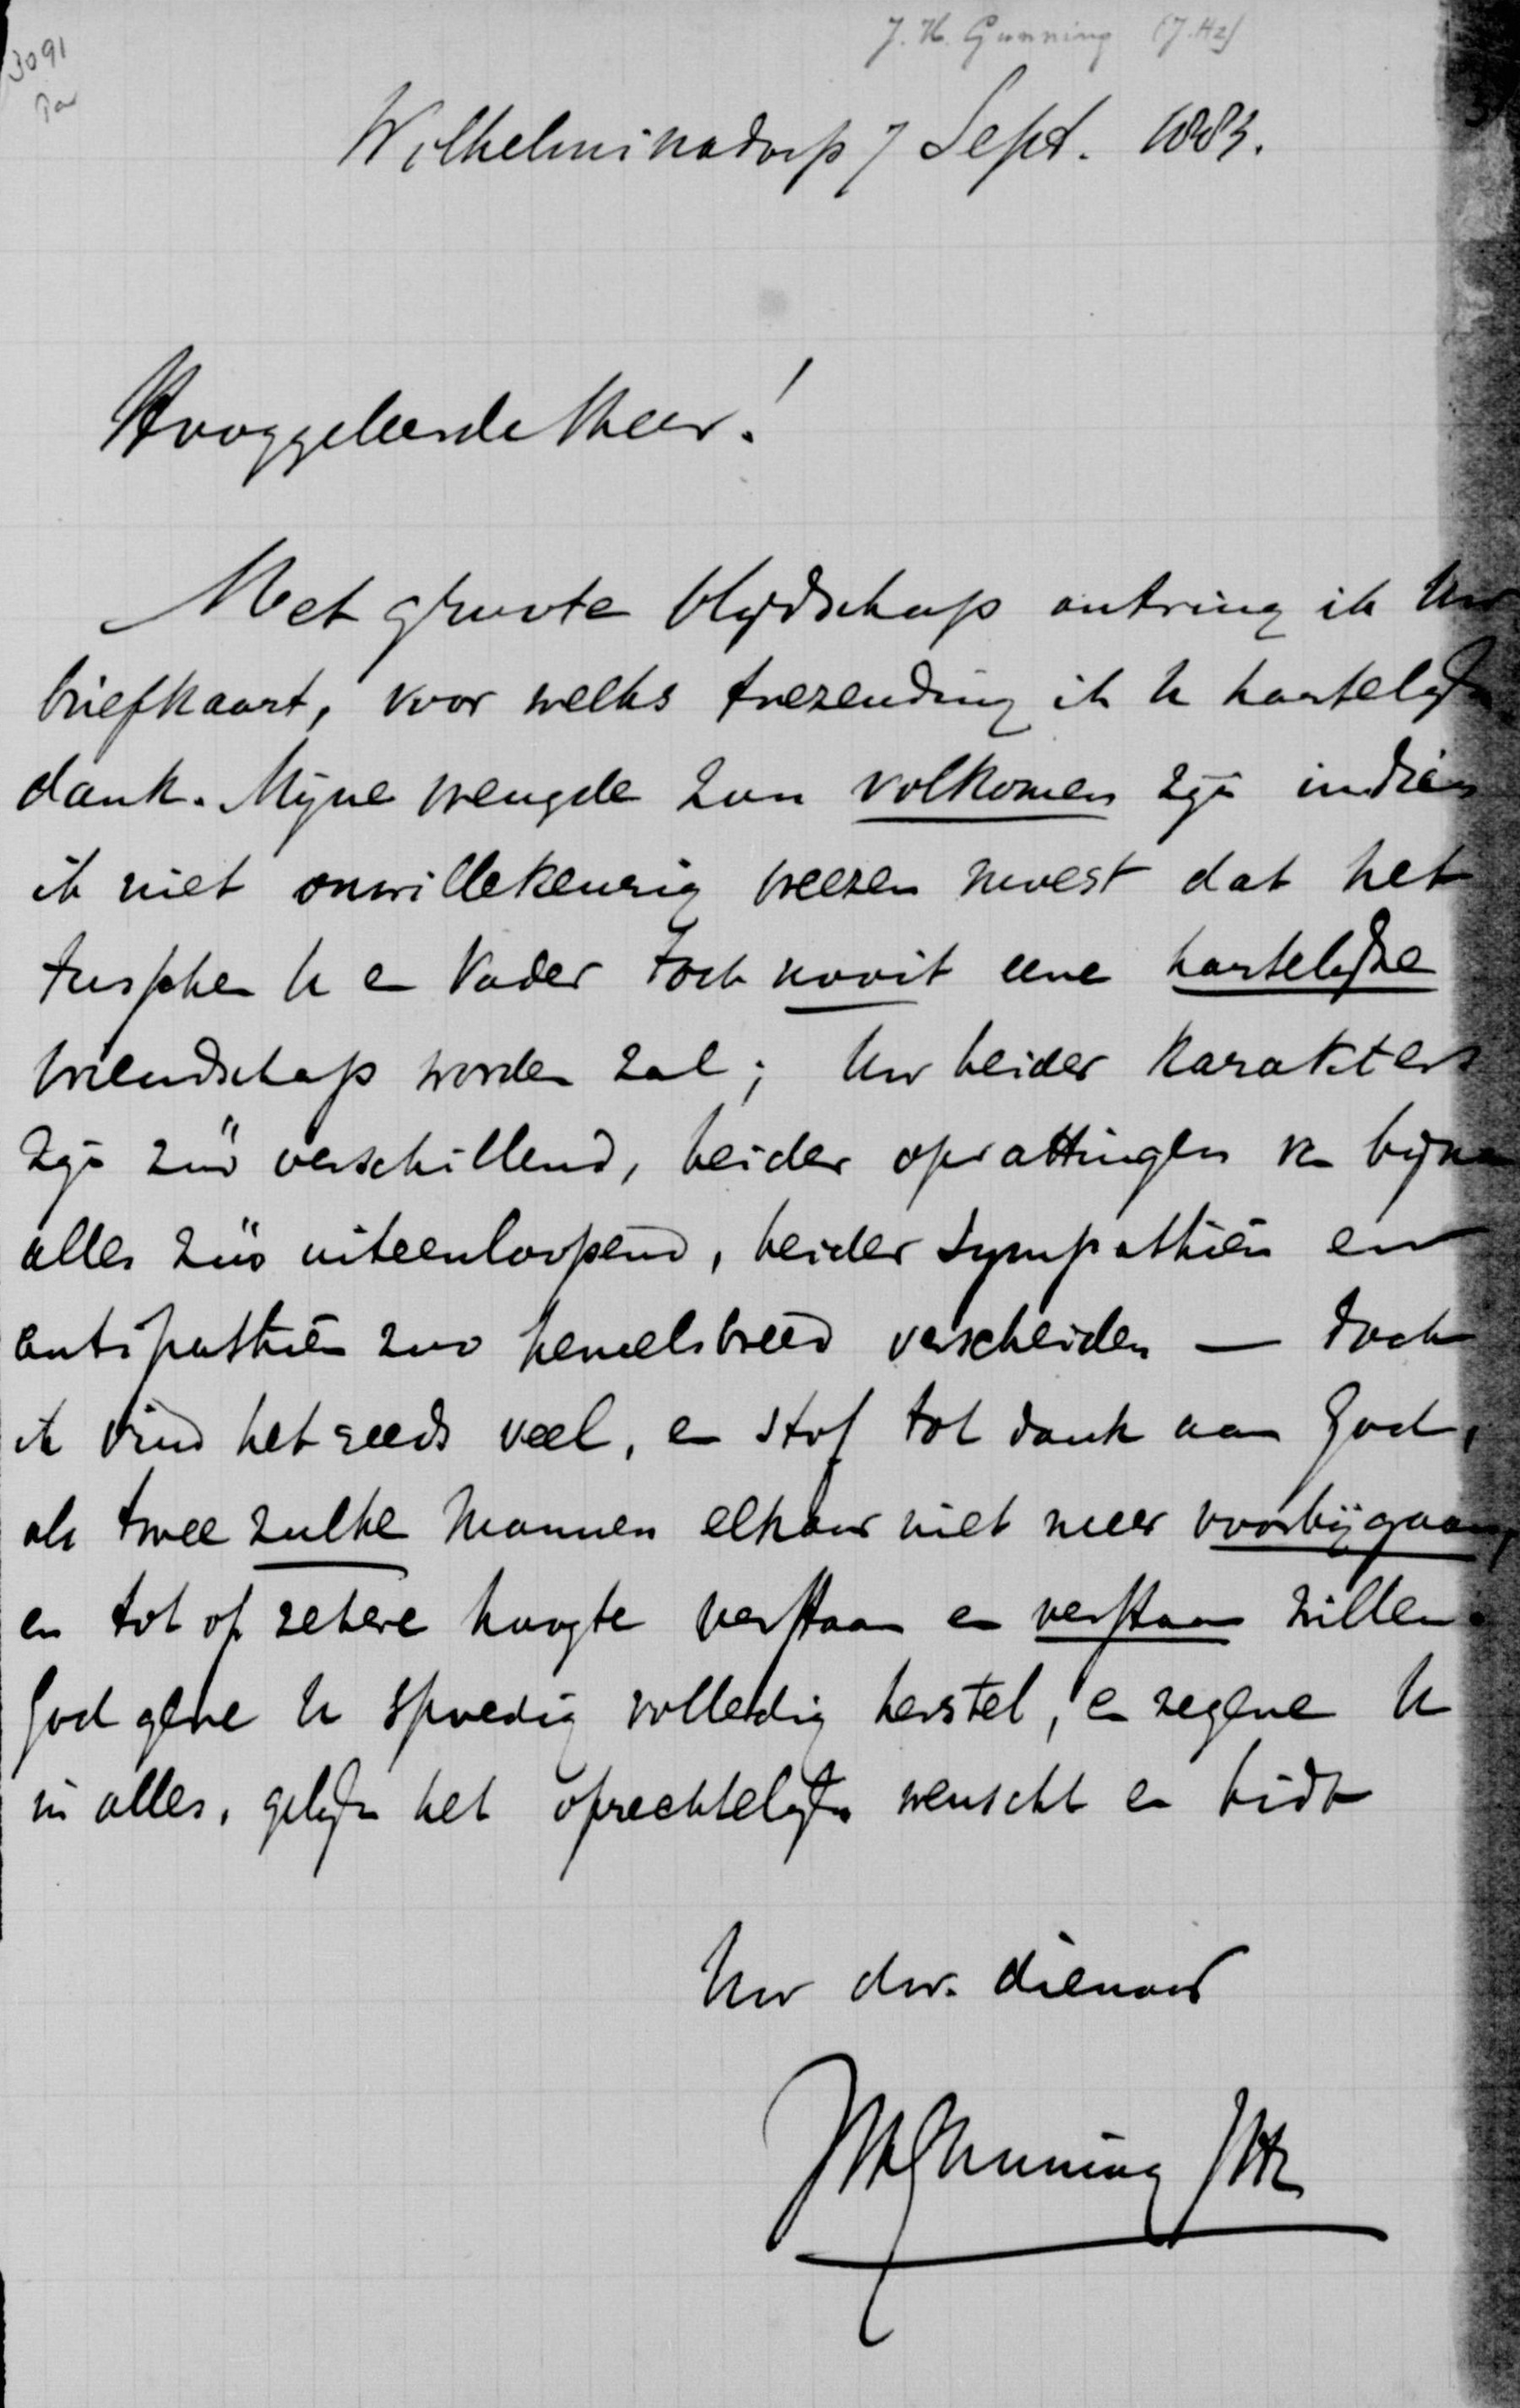 3091
J. H. Gunning (J.Hz)
Wilhelminadorp 7 Sept. 1883.
Hooggeleerde Heer!
Met groote blijdschap ontving ik Uw
briefkaart, voor welks toezending ik U hartelijk
dank. Mijne vreugde zou volkomen zijn indien
ik niet onwillekeurig vreezen moest dat het
tusschen U en Vader toch nooit eene hartelijke
vriendschap worden zal; Uw beider karakters
zijn zóó verschillend, beider opvattingen van bijna
alles zóó uiteenloopend, beider sympathiën en
antipathiën zoo hemelsbreed verscheiden — doch
ik vind het reeds veel, en stof tot dank aan God,
als twee zulke mannen elkaar niet meer voorbijgaan,
en tot op zekere hoogte verstaan en verstaan willen.
God geve U spoedig volledig herstel, en zegene U
in alles, gelijk het oprechtelijk wenscht en bidt
Uw dw. dienaar
JHGunning JHz